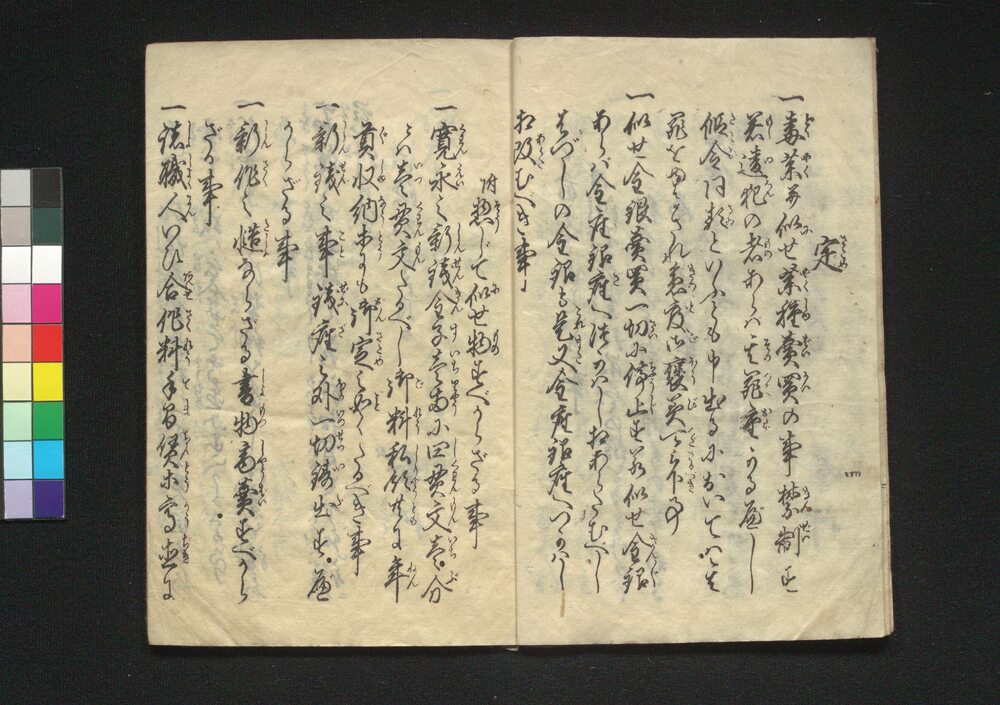 定
一毒薬并似せ薬種賣買の事禁制す
若違犯の者あらハ其罪重かる遍し
仮令同類といふとも申出るにおいてハ其
罪をゆるされ急度御褒美可被下事
一似せ金銀賣買一切に停止す若似せ金銀
あらハ金座銀座へ遣はしあらたむへし
はづしの金銀も是又金座銀座へつかハし
相改むべき事
附惣じて似せ物すべからざる事
一寛永之新銭金子壱両に四貫文壱分
にハ壱貫文たるべし御料私領共に年
貢収納等にも御定之如くたるべき事
一新銭之事銭座之外一切鋳出すべ
からざる事
一新作之慥ならざる書物商賣すべから
ざる事
一諸職人いひ合作料手間賃等高直に